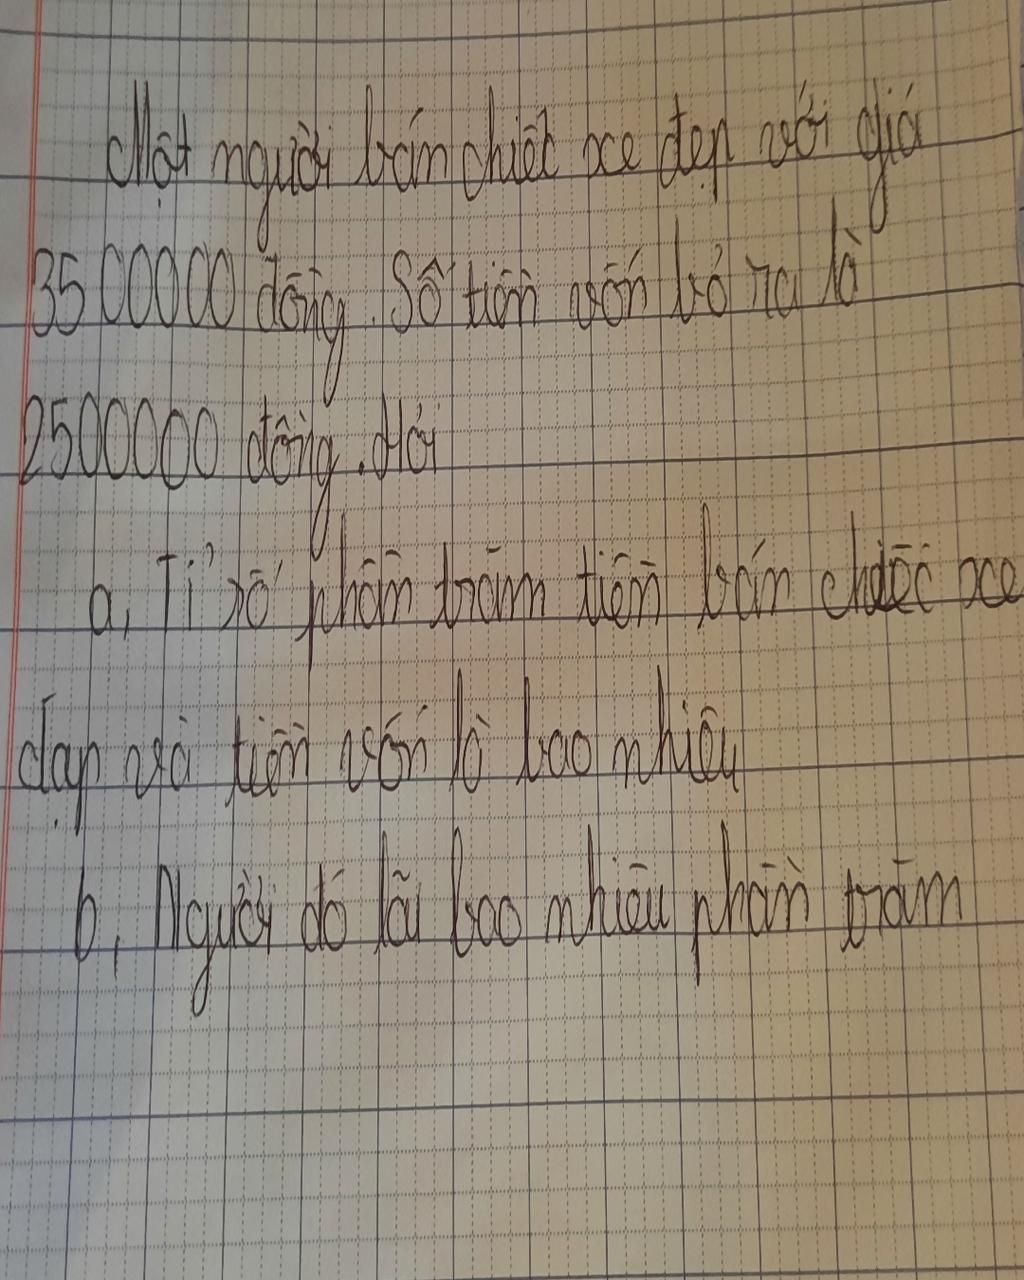 Một người bán chiếc xe đẹp với giá
3500000 đồng. Số tiền vốn bỏ ra là
2500000 đồng. Hỏi
a, Tỉ số phần trăm tiền bán chiếc xe
đạp và tiền vốn là bao nhiêu
b, Người đó lãi bao nhiêu phần trăm